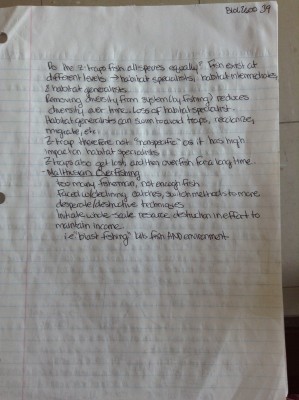 BIOL3600 J9
Do the Z traps fish all species equally? Fish exist at
different levels → habitat specialists, habitat intermediates,
& habitat generalists.
Removing diversity from system by fishing? reduces
diversity over time. Loss of habitat specialist.
Habitat generalists can swim to avoid traps, recolonize,
migrate, etc.
Z trap therefore not "nonspecific" as it has high
impact on habitat specialists.
Z traps also get lost and then overfish for a long time.
• Malthusian Overfishing
too many fisherman, not enough fish
Faced w/ declining catches, switch methods to more
desperate/destructive techniques
Initiate whole-scale resource destruction in effort to
maintain income
i.e. "blast fishing" kills fish AND environment.